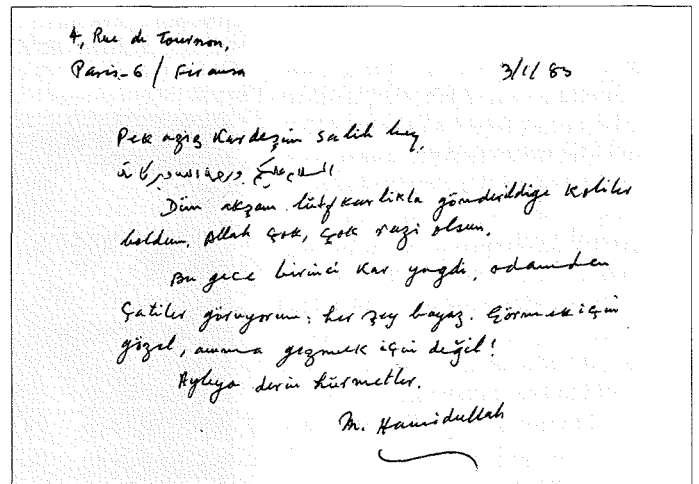 4, Rue de Tournon,
Paris-6 / Firansa 3/1/83
Pek aziz Kardeşim Salih bey,
السلام عليكم ورحمة الله وبركاته
Dün akşam lütfkarlikla gönderildige koliler
boldum. Allah çok, çok razi olsun.
Bu gece birinci kar yagdi, odamdan
Çatiler görüyorum: her şey bayaz. Görmek için
gözel, amma gezmek için değil!
Ayleye derin hürmetler.
M. Hamidullah